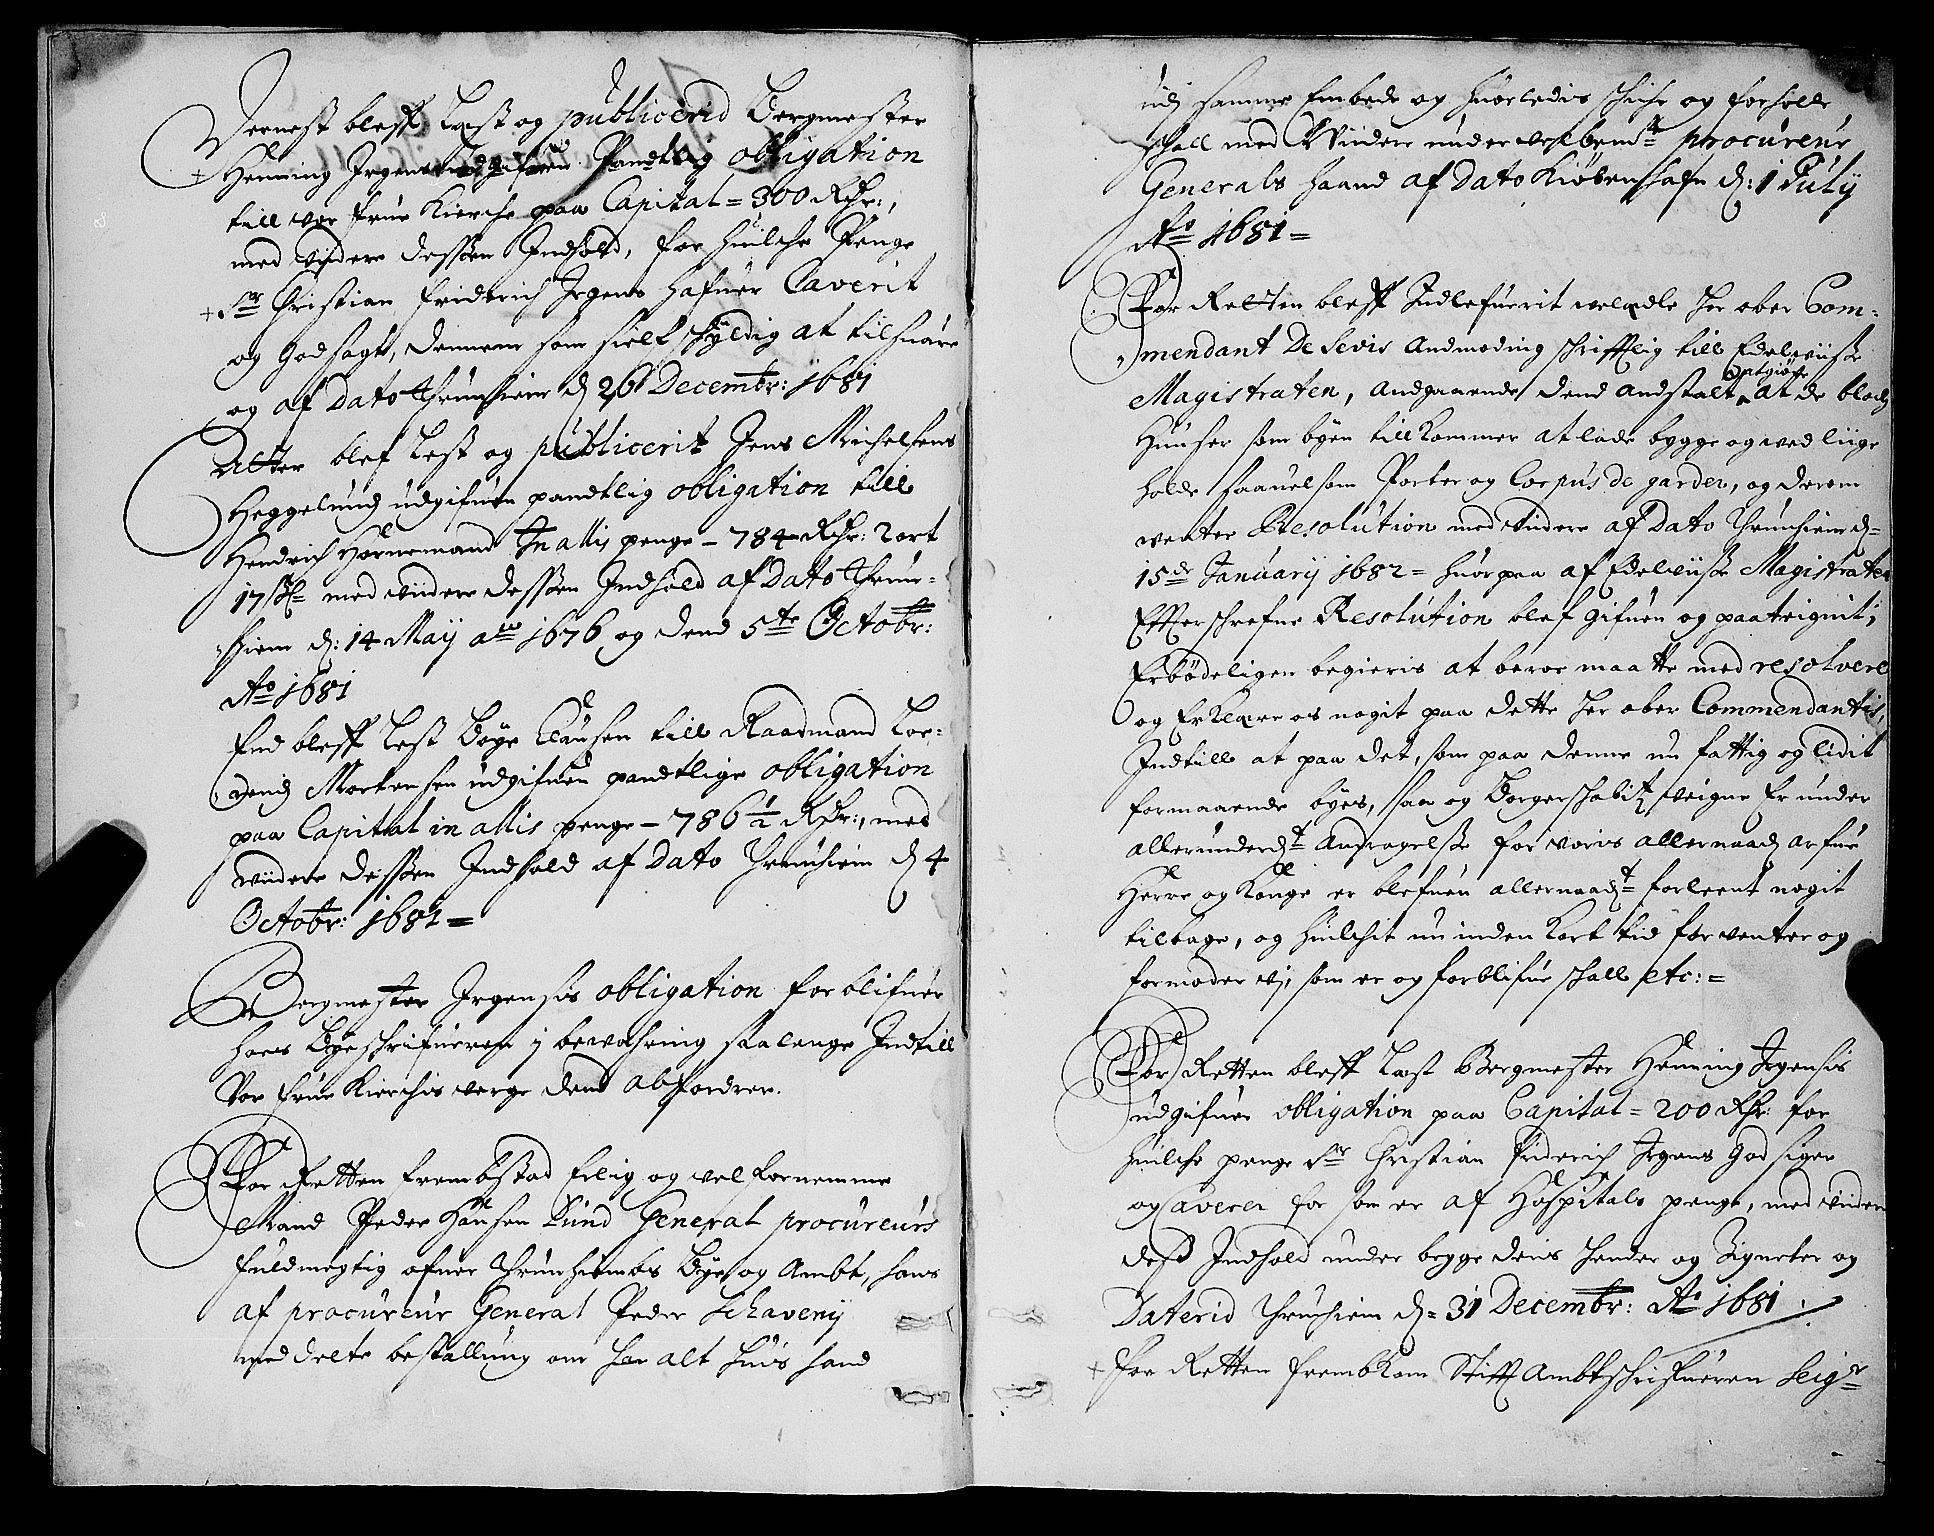 Dernest bleff Læst og publicerid Bergmester
Henning Irgens udgifuen Pandtlig obligation
till vor frue Kierche paa Capital = 300 Rdr:,
med videre dessen Indhold, for huilche Penge
Sr Christian fridrich Irgens hafuer Caverit
og godsagt, dennem som sielf schyldig at tilsuare
og af Dato Thrunhiem d 26 Decembr: 1681
Atter blef Lest og publicerit Jens Michelsens
Heggelund udgifuen pandtlig obligation till
Hendrich Hornemand In allis penge – 784 Rdr: 2 ort
17 s med videre dessen Indhold af Dato Thrun-
hiem d: 14 Maij ao 1676 og dend 5te Octobr:
Ao 1681
End bleff Lest Boye Clausen till Raadmand Lor-
rends Mortensen udgifuen pandtlige obligation
paa Capital in allis penge – 786 1/2 Rdr:, med
videre dessen Indhold af Dato Thrunhiem d 4
Octobr: 1681 =
Bergmester Irgensis obligation forblifuer
hoes Byeschrifueren i bewahring saalenge Indtill
Vor frue Kierchis verge dend abfordrer.
For Retten frembstod Erlig og velfornemme
Mand Peder Hansen Lund General procureurs
fuldmegtig ofuer Thrunhiembs Bye og Ambt, hans
af procureur General Peder Schavenij
meddelte bestallung om hor alt huis hand
udj samme Embede og huorledis schiche og forholle
schall med Widere under velbemte procureur
Generals haand af Dato Kiøbenhafn d: 1 July
Ao 1681 =
For Retten bleff Indlefuerit velædle Her ober Com-
mendant De Sevis Andmoding schrifftlig till Edelviise
Magistraten, Andgaaende dend andstalt at giøre at de bloch
Huuser som byen tillkommer at lade bygge og ved liige
holde saauelsom Porter og Corpus de garder, og derom
venter Resolution med videre af Dato Thrunhiem d=
15de January 1682 = huorpaa af Edelviise Magistraten
Effterschrefne Resolution blef gifuen og paateignit;
Erbødeligen begieris at beroe maatte med resolvere
og Erklære os nogit paa dette Her ober Commendantis,
Indtill at paa det, som paa denne nu fattig og lidit
formaaende byes, saa og Borgerschabits veigne Er under
allerunderdt Andragelse for voris allernaad arfue
Herre og Konge er blefuen allernaadt forleent nogit
tilbage, og huilchit nu inden kort tid forventer og
formoder vj, som er og forblifue schall etc: =
For Retten bleff Læst Bergmester Henning Irgensis
udgifuen obligation paa Capital = 200 Rdr: for
huilche penge Sr Christian friderich Irgens god siger
og Caverer for som er af Hospitals penge, med vider
dess Indhold under begge deris Hender og Zigneter og
Daterid Thrunhiem d= 31 Decembr: Ao 1681
For Retten frembkom Stifft Ambtschrifueren Seigr